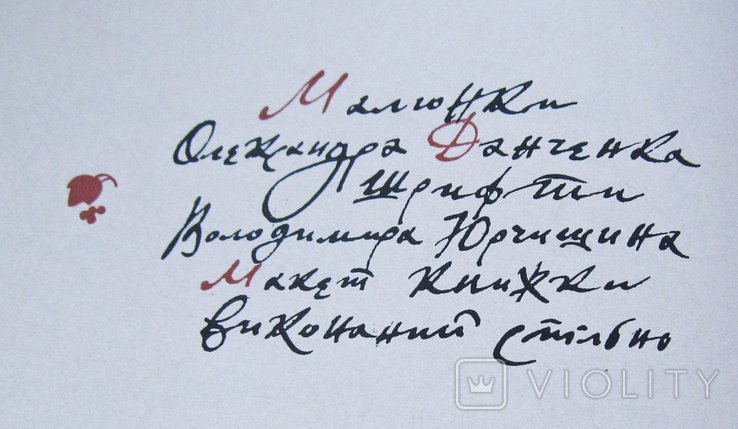 Малюнки
Олександра Данченка
шрифти
Володимира Юрчишина
Макет книжки
виконаний спільно
VIOLITY